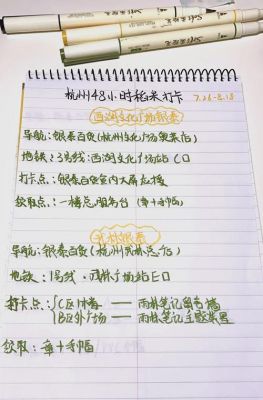 杭州48小时稻米打卡 7.26-8.18
西湖文化广场银泰
导航:银泰百货(杭州文化广场银泰店)
地铁:3号线:西湖文化广场站C口
打卡点:银泰百货室内大屏左拐
领取点:一楼总服务台(章+手幅)
武林银泰
导航:银泰百货(杭州武林总店)
地铁:1号线:武林广场站E口
打卡点:{C区中青——雨林笔记留言墙
B区外广场——雨林笔记主题装置
领取:章+手幅